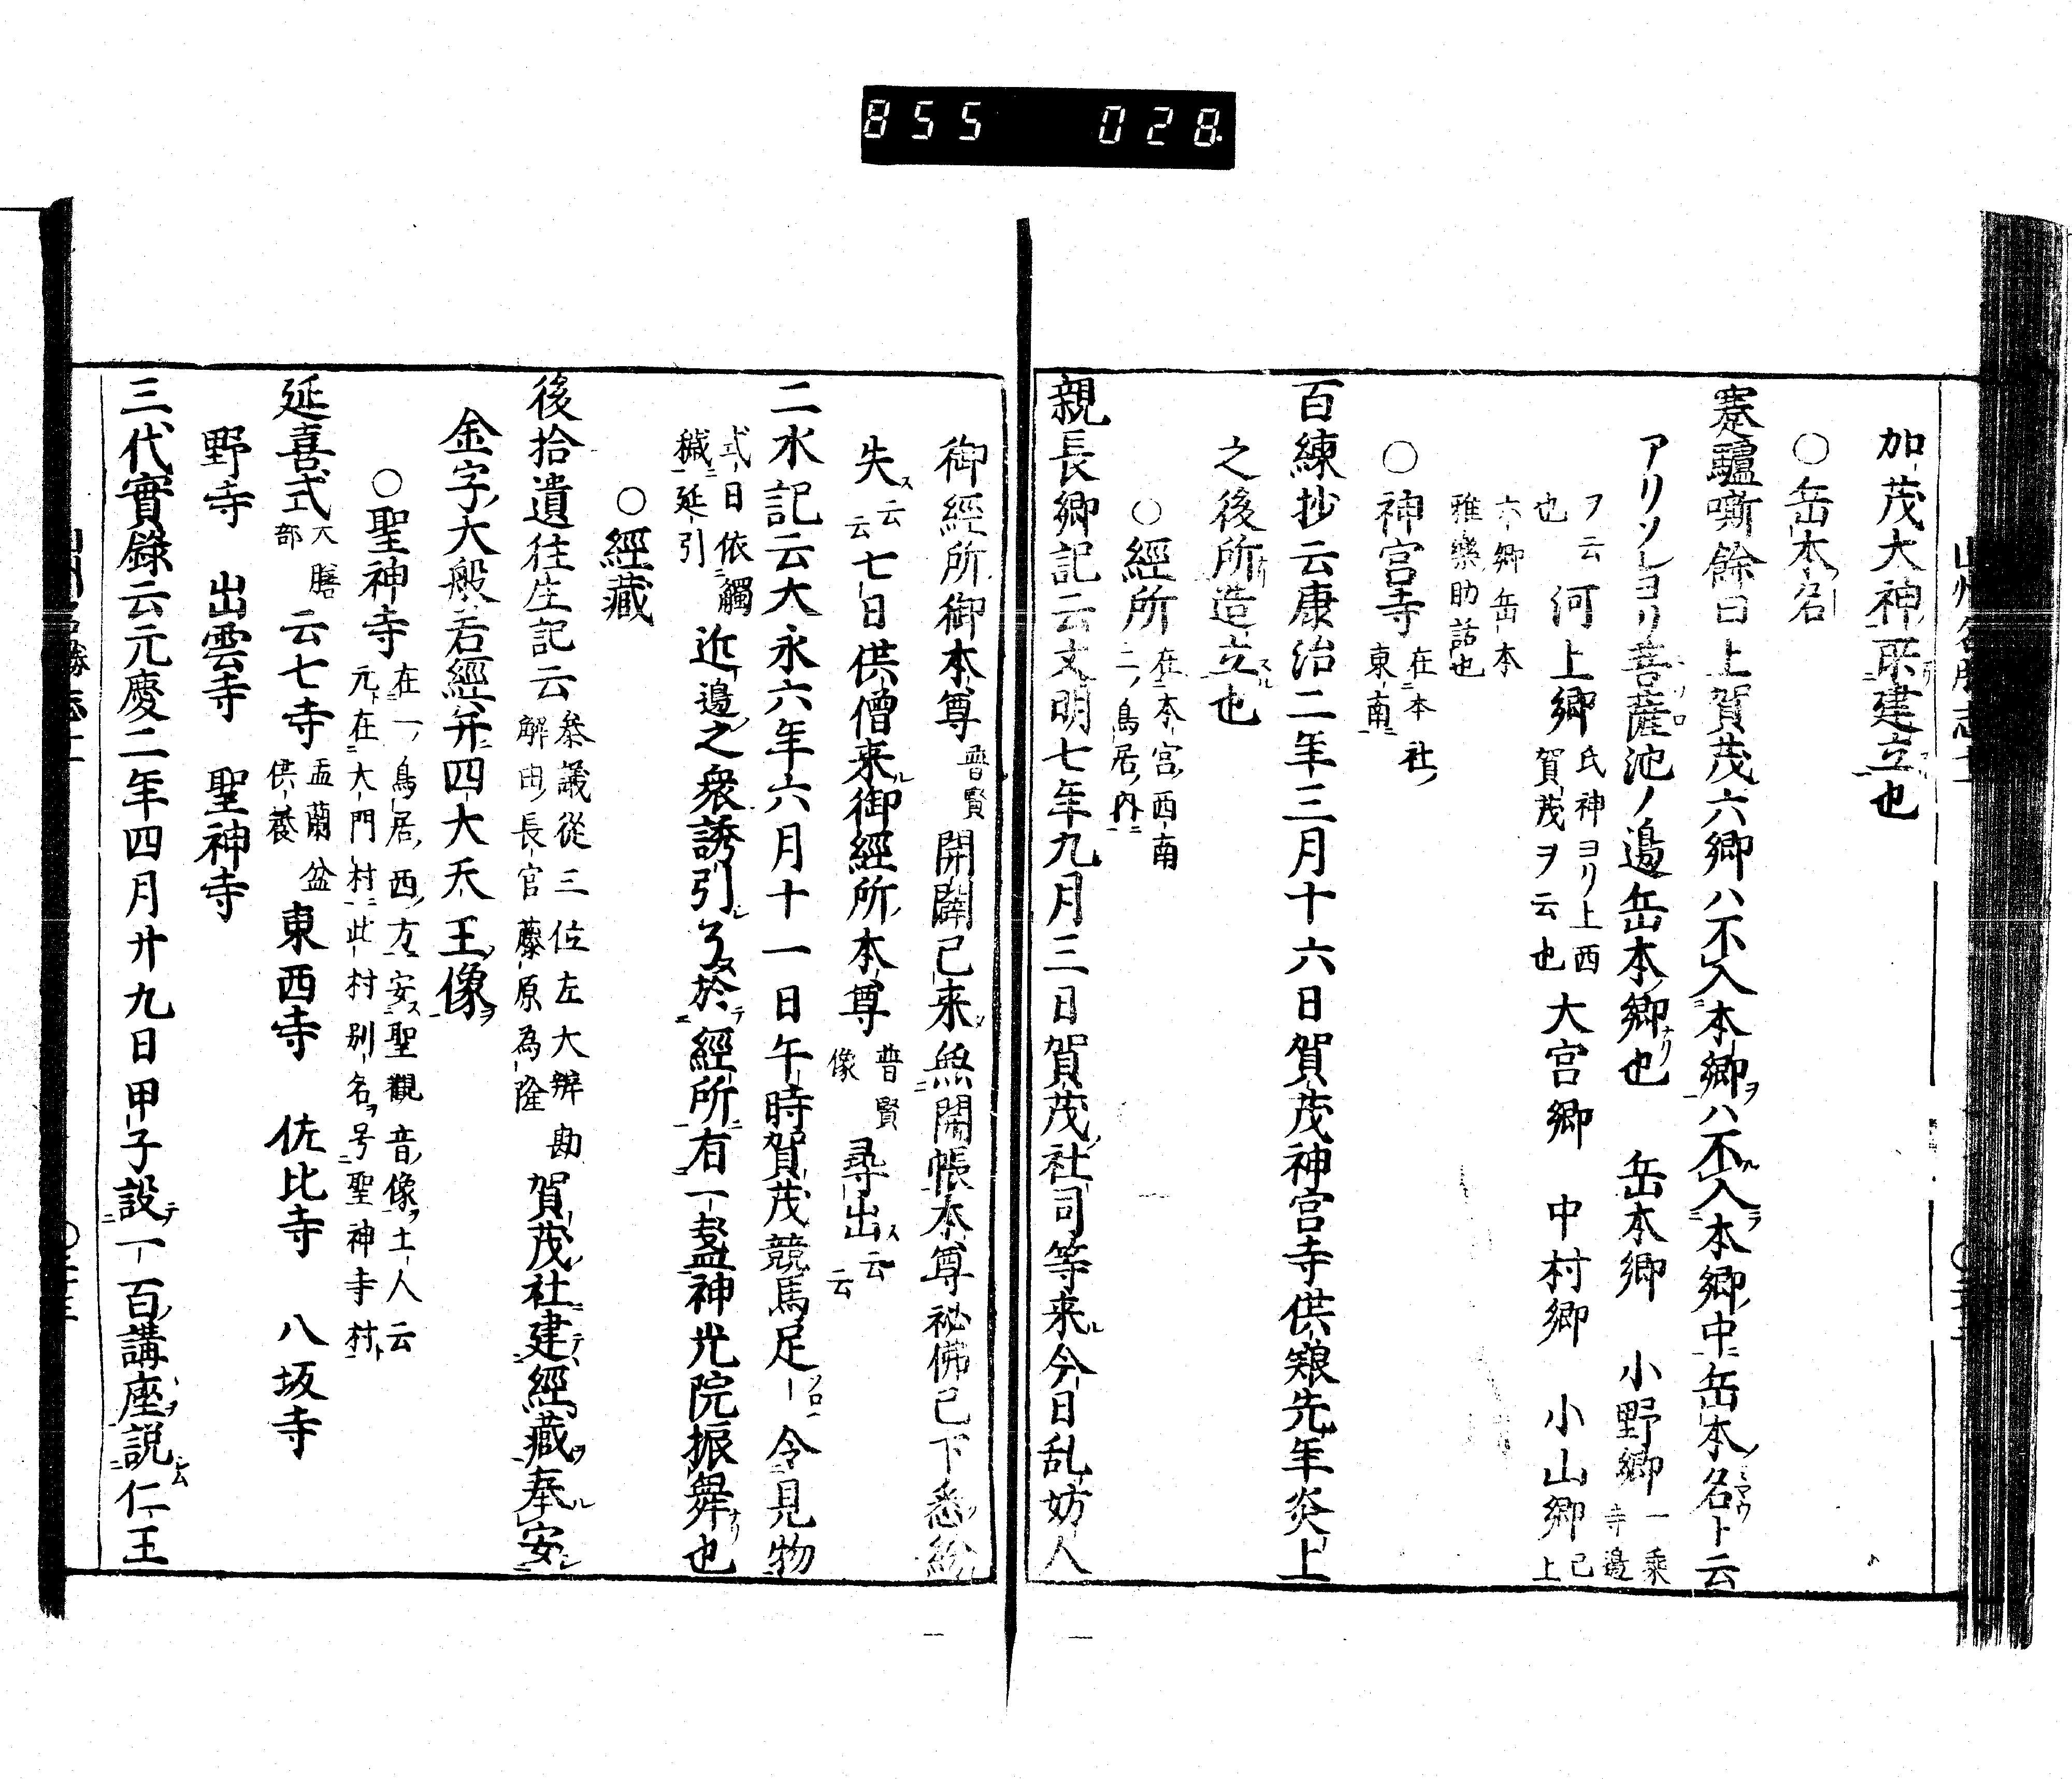 855 028
加茂大神所建立也
○岳本名
蹇驢嘶餘曰上賀茂六郷ハ不入本郷ヲハ不入本郷中岳本名ト云
アリソレヨリ菩薩池ノ邉岳本郷也 岳本郷 小野郷 一乗寺邉己上
ヲ云也 河上郷 氏神ヨリ上西賀茂ヲ云也 大宮郷 中村郷 小山郷
六郷岳本雅樂助話也
○神宮寺 在本社東南
百練抄云康治二年三月十六日賀茂神宮寺供粮先年炎上
之後所造立也
○經所 在本宮西南二ノ鳥居ノ内
親長卿記云文明七年九月三日賀茂社司等来今日乱妨人
御經所御本尊 普賢 開闢已来無開帳本尊祕佛已下悉紛
失云云七日供僧来御經所本尊 普賢像 尋出云云
二水記云大永六年六月十一日午時賀茂競馬足令見物
式日依觸穢延引 近邉之衆誘引了於經所有一盞神光院振舞也
○經藏
後拾遺往生記云 参議從三位左大辨勘解由長官藤原為隆 賀茂社建經藏奉安
金字大般若經并四大天王像
○聖神寺 在一ノ鳥居西方安聖觀音像土人云元在大門村此村别名号聖神寺村
延喜式 大膳部 云七寺 盂蘭盆供養 東西寺 佐比寺 八坂寺
野寺 出雲寺 聖神寺
三代實錄云元慶二年四月廾九日甲子設一百講座説仁王